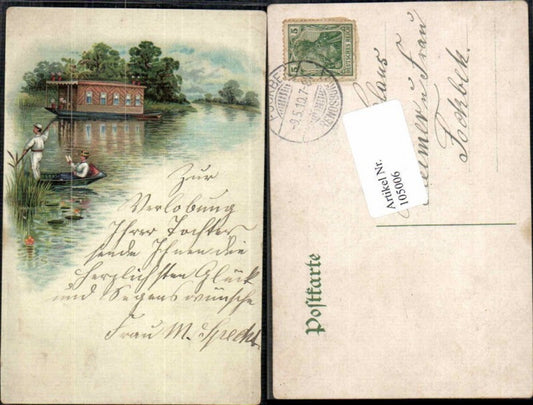 Zur
Verlobung
Ihrer Tochter
sende Ihnen die
herzlichsten Glück
und Segenswünsche
Frau M. Specht
5
5
DEUTSCHES REICH
-9.5.10.7-
Artikel Nr.
105006
u Frau
Postkarte